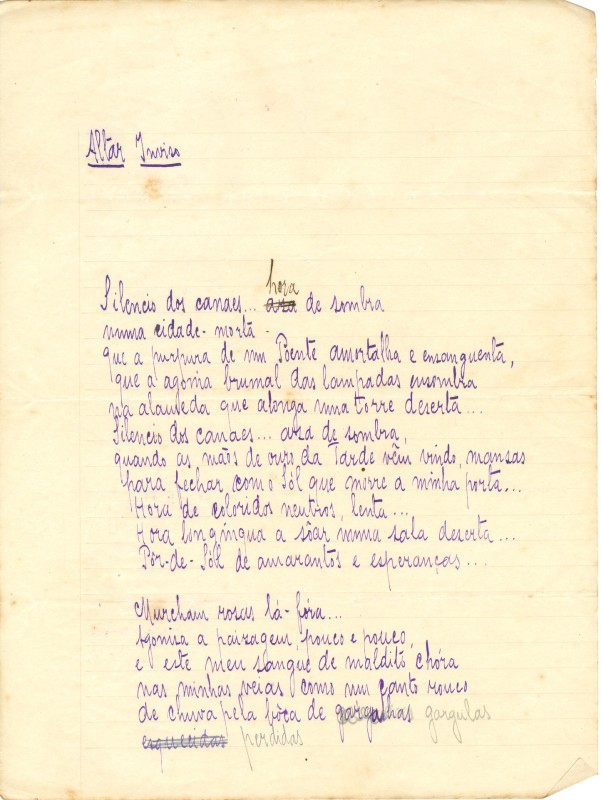 Altar Inviso
Silencio dos canaes... hora de sombra
numa cidade-morta -
que a purpura de um Poente amortalha e ensanguenta,
que a agonia brumal das lampadas ensombra
na alameda que alonga uma torre deserta...
Silencio dos canaes... asa de sombra,
quando as mãos de ouro da Tarde vêm vindo, mansas
para fechar com o Sól que morre a minha porta...
Hora de coloridos neutros, lenta...
Hora longinqua a sôar numa sala deserta...
Pôr-de-Sól de amarantos e esperanças...
Murcham rosas lá-fóra...
Agoniza a paizagem, pouco e pouco,
e este meu sangue de maldito chóra
nas minhas veias como um canto rouco
de chuva pela bôca de gargulas
esquecidas perdidas